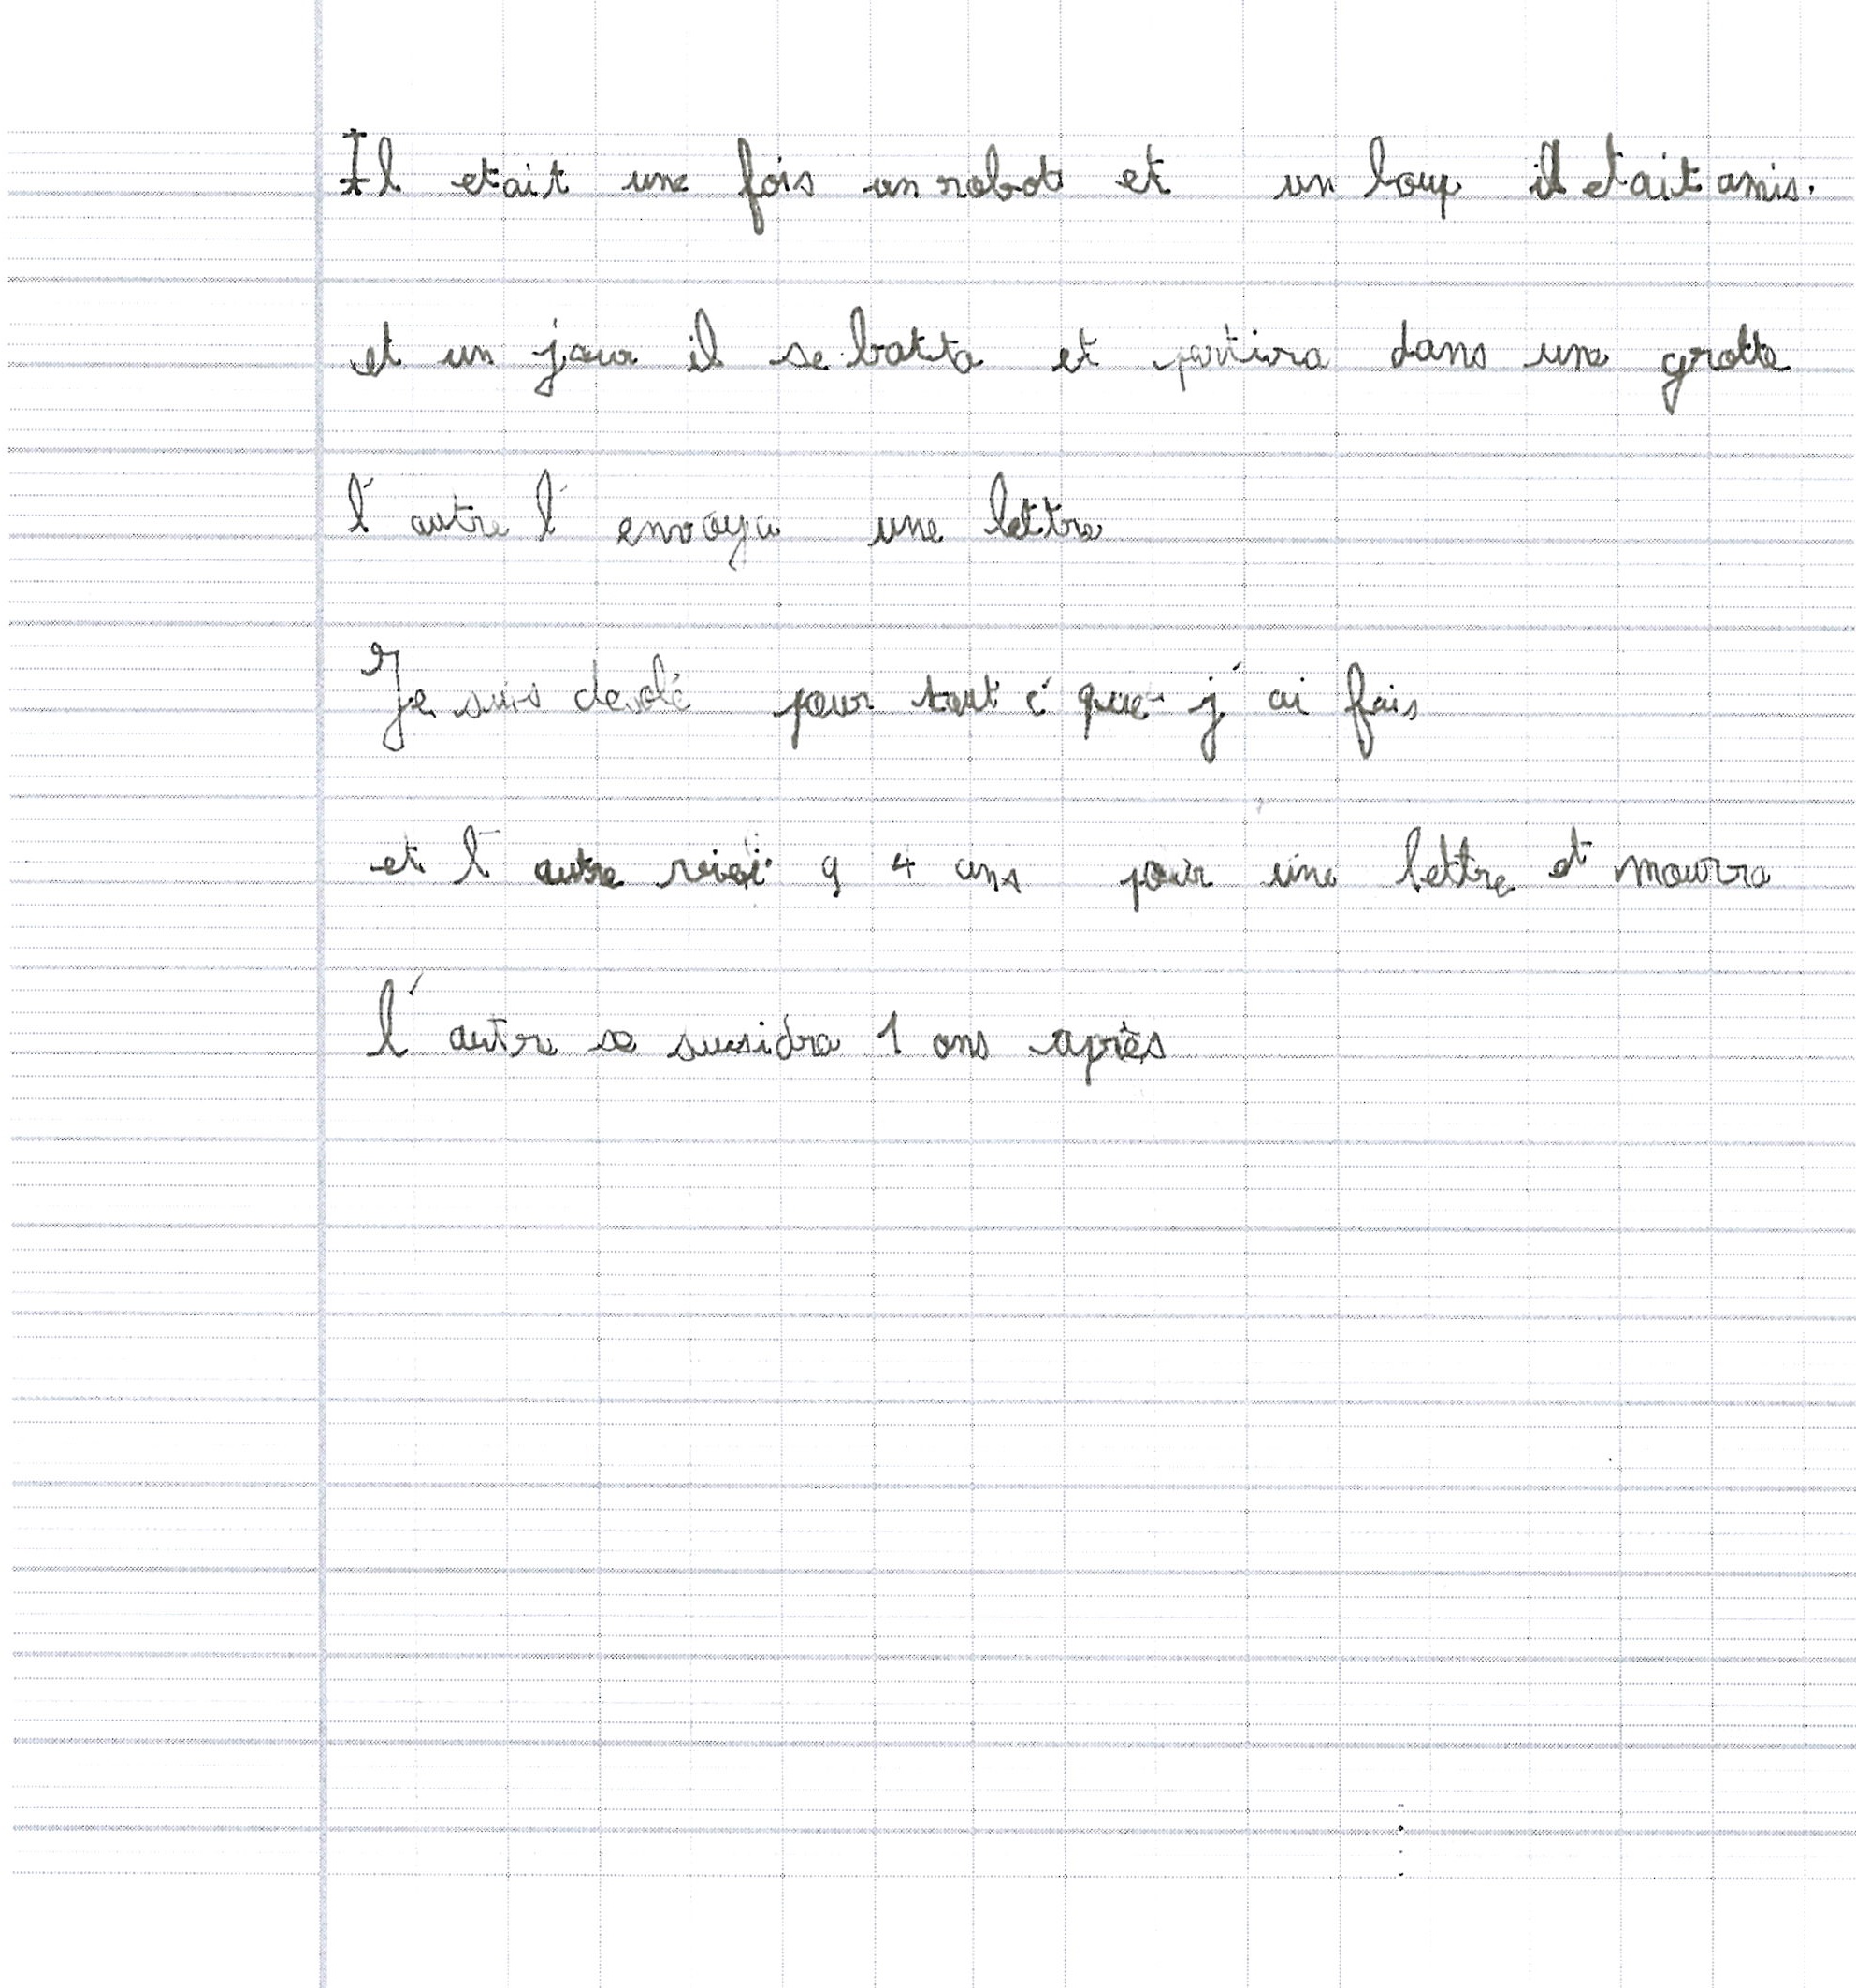 Il etait une fois un robot et un loup il etait amis.
et un jour il se batta et partira dans une grotte
l'autre l'envoya une lettre
Je suis desolé pour tout c'que j'ai fais
et l'autre 9 4 ans pour une lettre et mourra
l'autre se suesidra 1 ans après